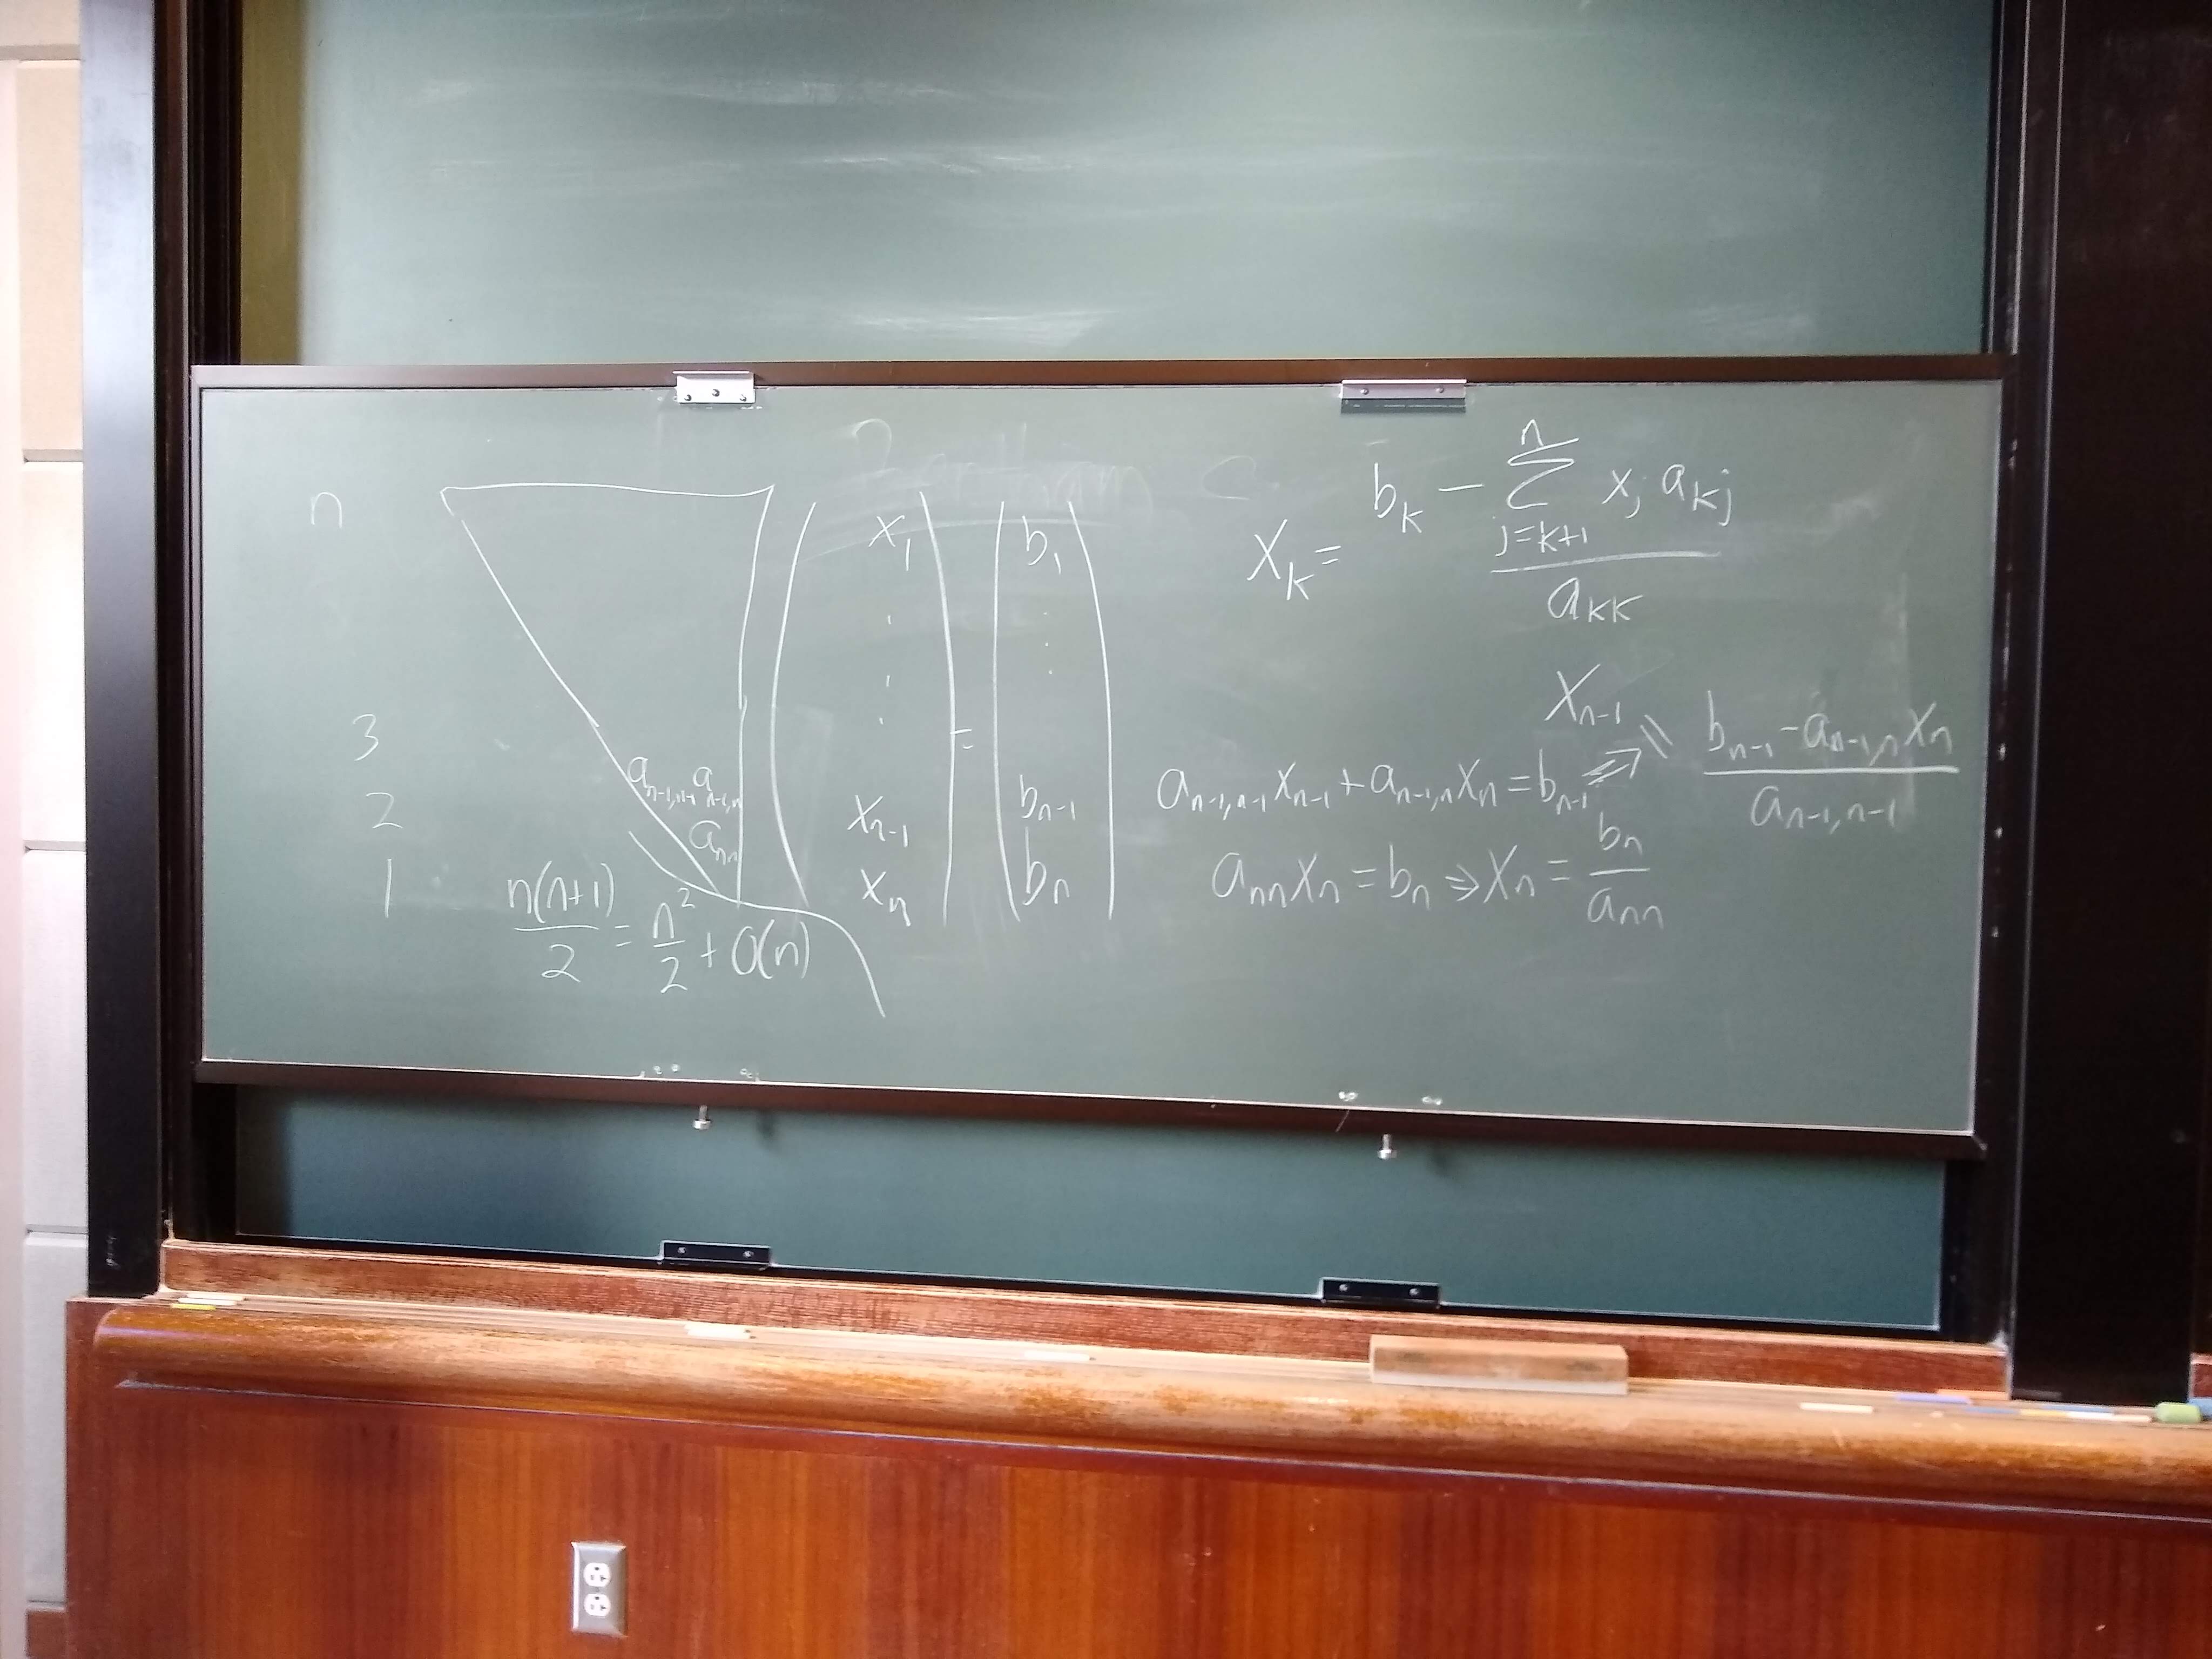 n
3
2
1
a_{n-1,n-1} a_{n-1,n}
a_{nn}
x_1
.
.
.
x_{n-1}
x_n
=
b_1
.
.
.
b_{n-1}
b_n
n(n+1)/2 = n^2/2 + O(n)
x_k = (b_k - \sum_{j=k+1}^{n} x_j a_{kj}) / a_{kk}
a_{n-1,n-1} x_{n-1} + a_{n-1,n} x_n = b_{n-1} ⇒ x_{n-1} = (b_{n-1} - a_{n-1,n} x_n) / a_{n-1,n-1}
a_{nn} x_n = b_n ⇒ x_n = b_n / a_{nn}